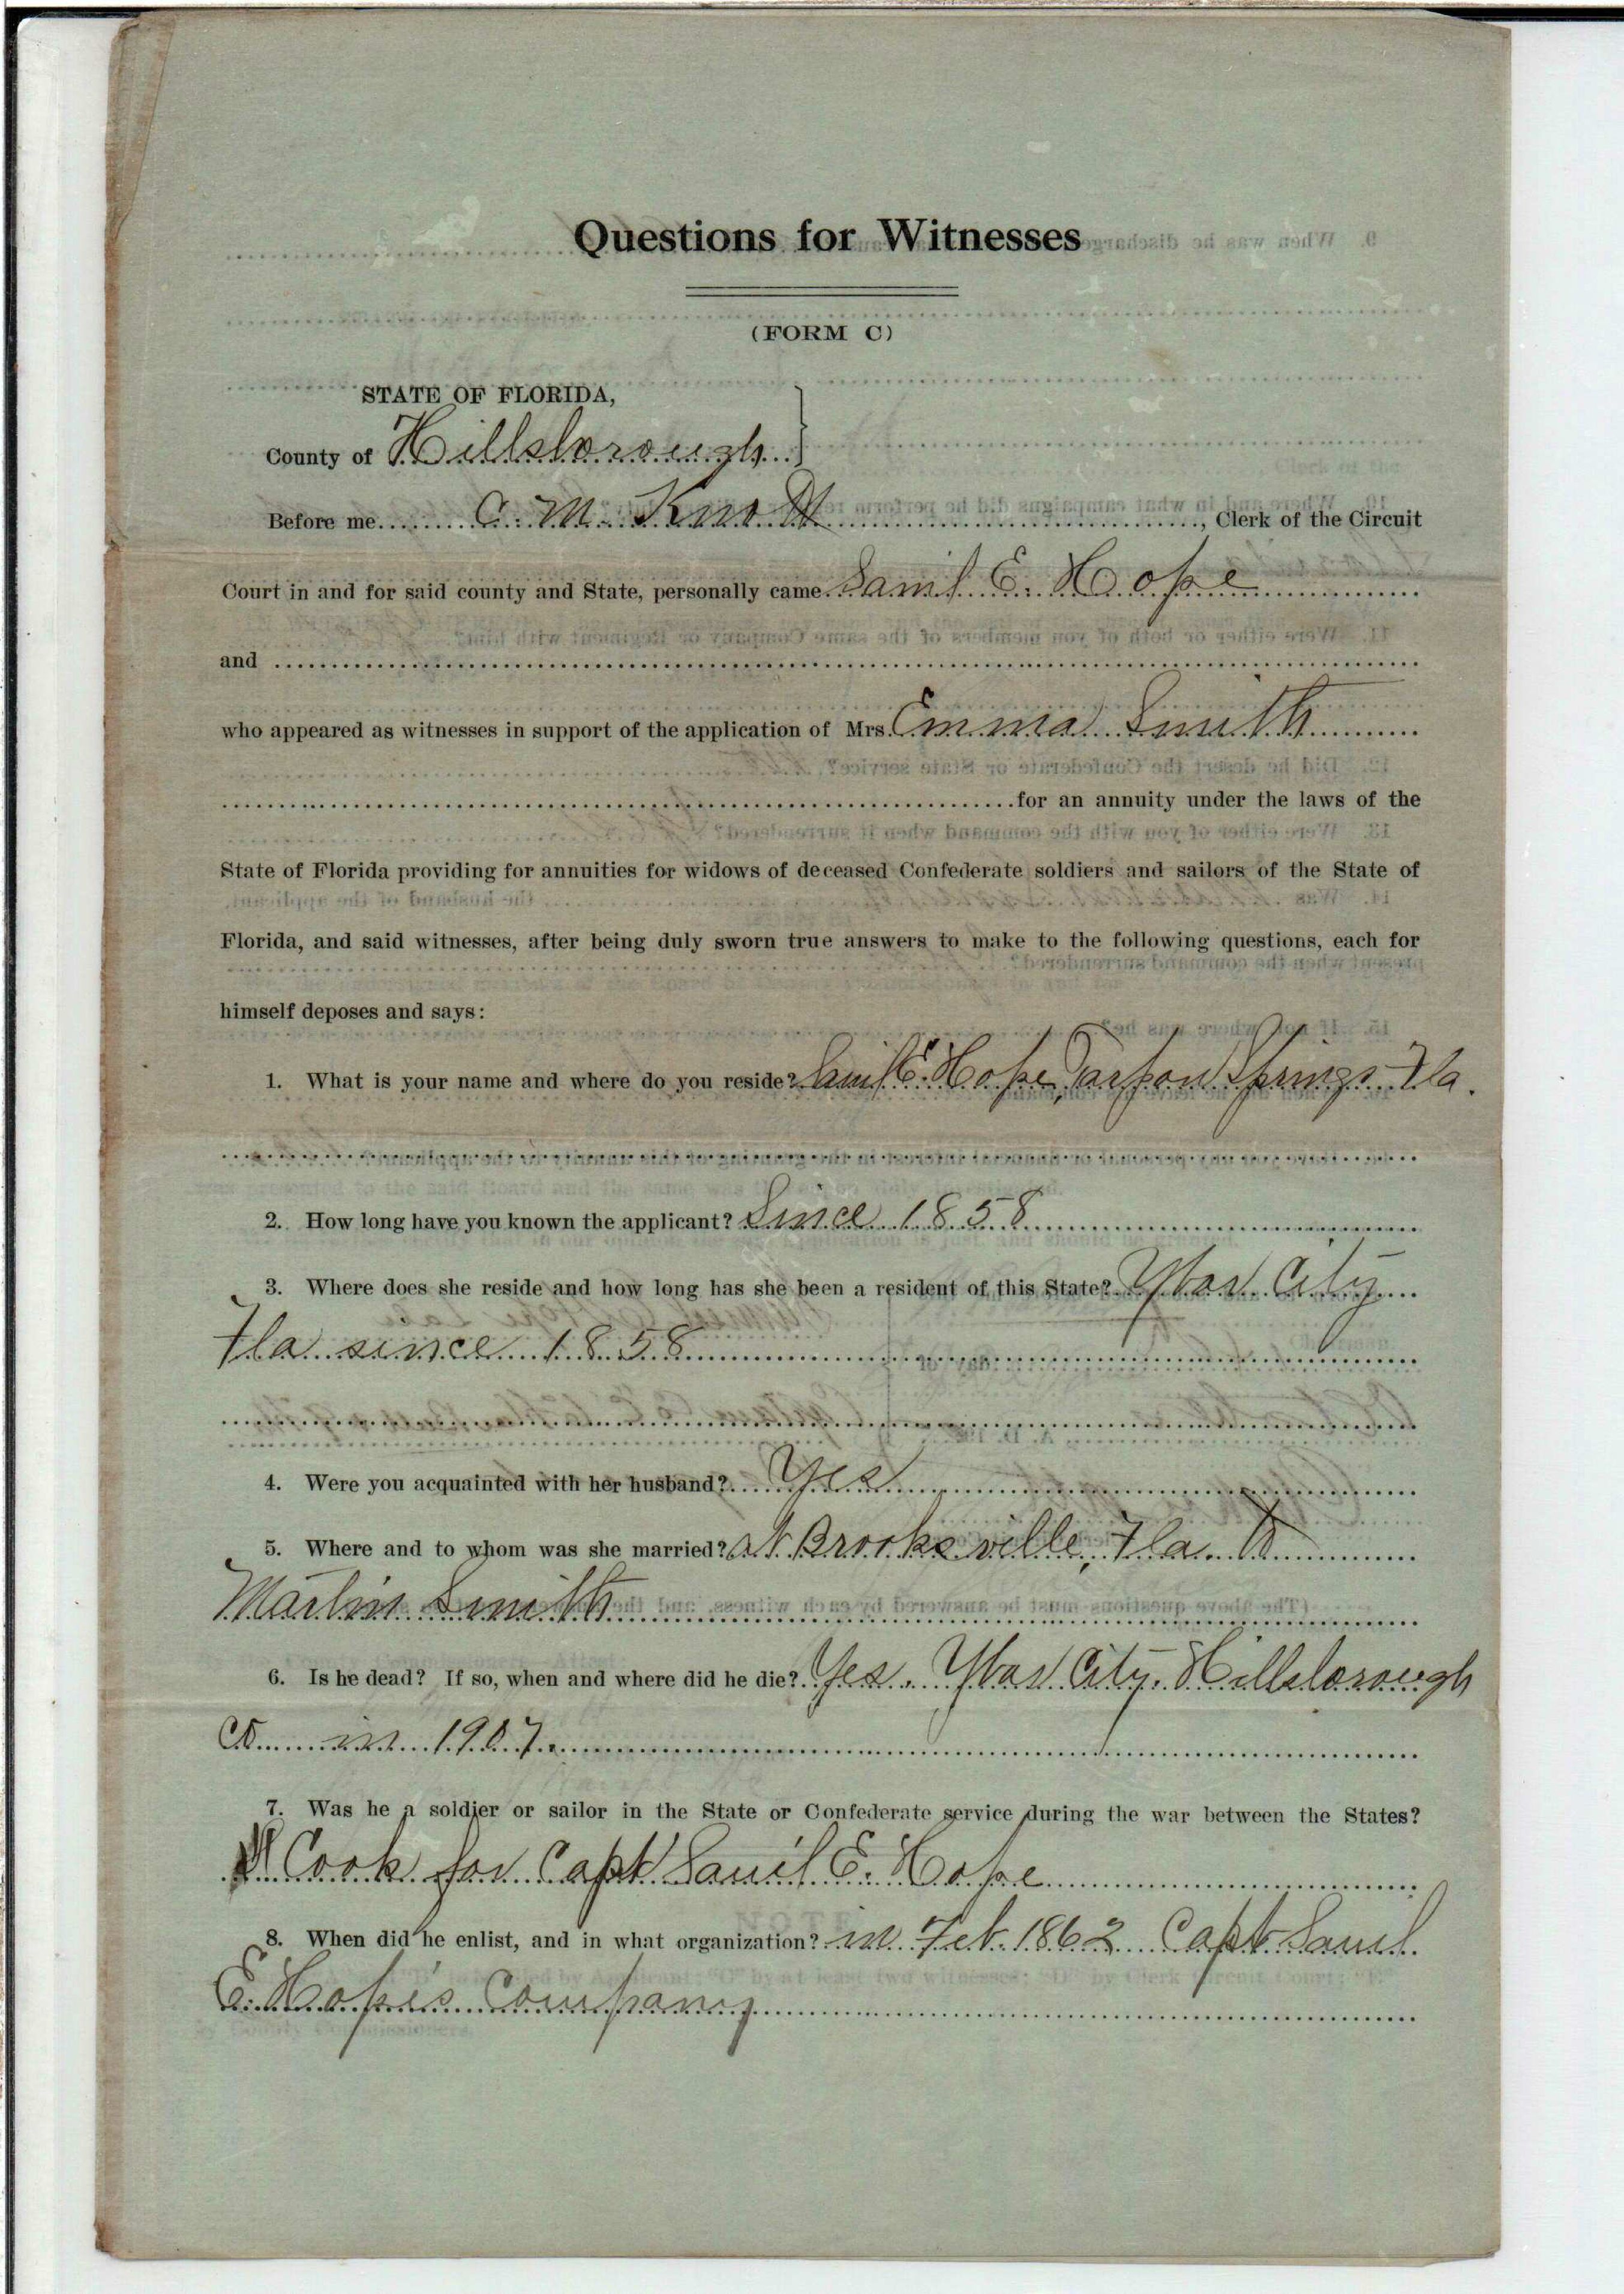 Questions for Witnesses
(FORM C)
STATE OF FLORIDA,
County of Hillsborough
Before me C. M. Knott, Clerk of the Circuit
Court in and for said county and State, personally came Saml E. Hope
and
who appeared as witnesses in support of the application of Mrs. Emma Smith
for an annuity under the laws of the
State of Florida providing for annuities for widows of deceased Confederate soldiers and sailors of the State of
Florida, and said witnesses, after being duly sworn true answers to make to the following questions, each for
himself deposes and says:
1. What is your name and where do you reside? Saml E. Hope, Tarpon Springs Fla.
2. How long have you known the applicant? Since 1858
3. Where does she reside and how long has she been a resident of this State? Ybor City
Fla since 1858
4. Were you acquainted with her husband? Yes
5. Where and to whom was she married? at Brooksville, Fla. to
Martin Smith
6. Is he dead? If so, when and where did he die? Yes. Ybor City. Hillsborough
Co in 1907
7. Was he a soldier or sailor in the State or Confederate service during the war between the States?
Cook for Capt Sam'l E. Hope
8. When did he enlist, and in what organization? in Feb. 1862 Capt Saml
E. Hope's Company